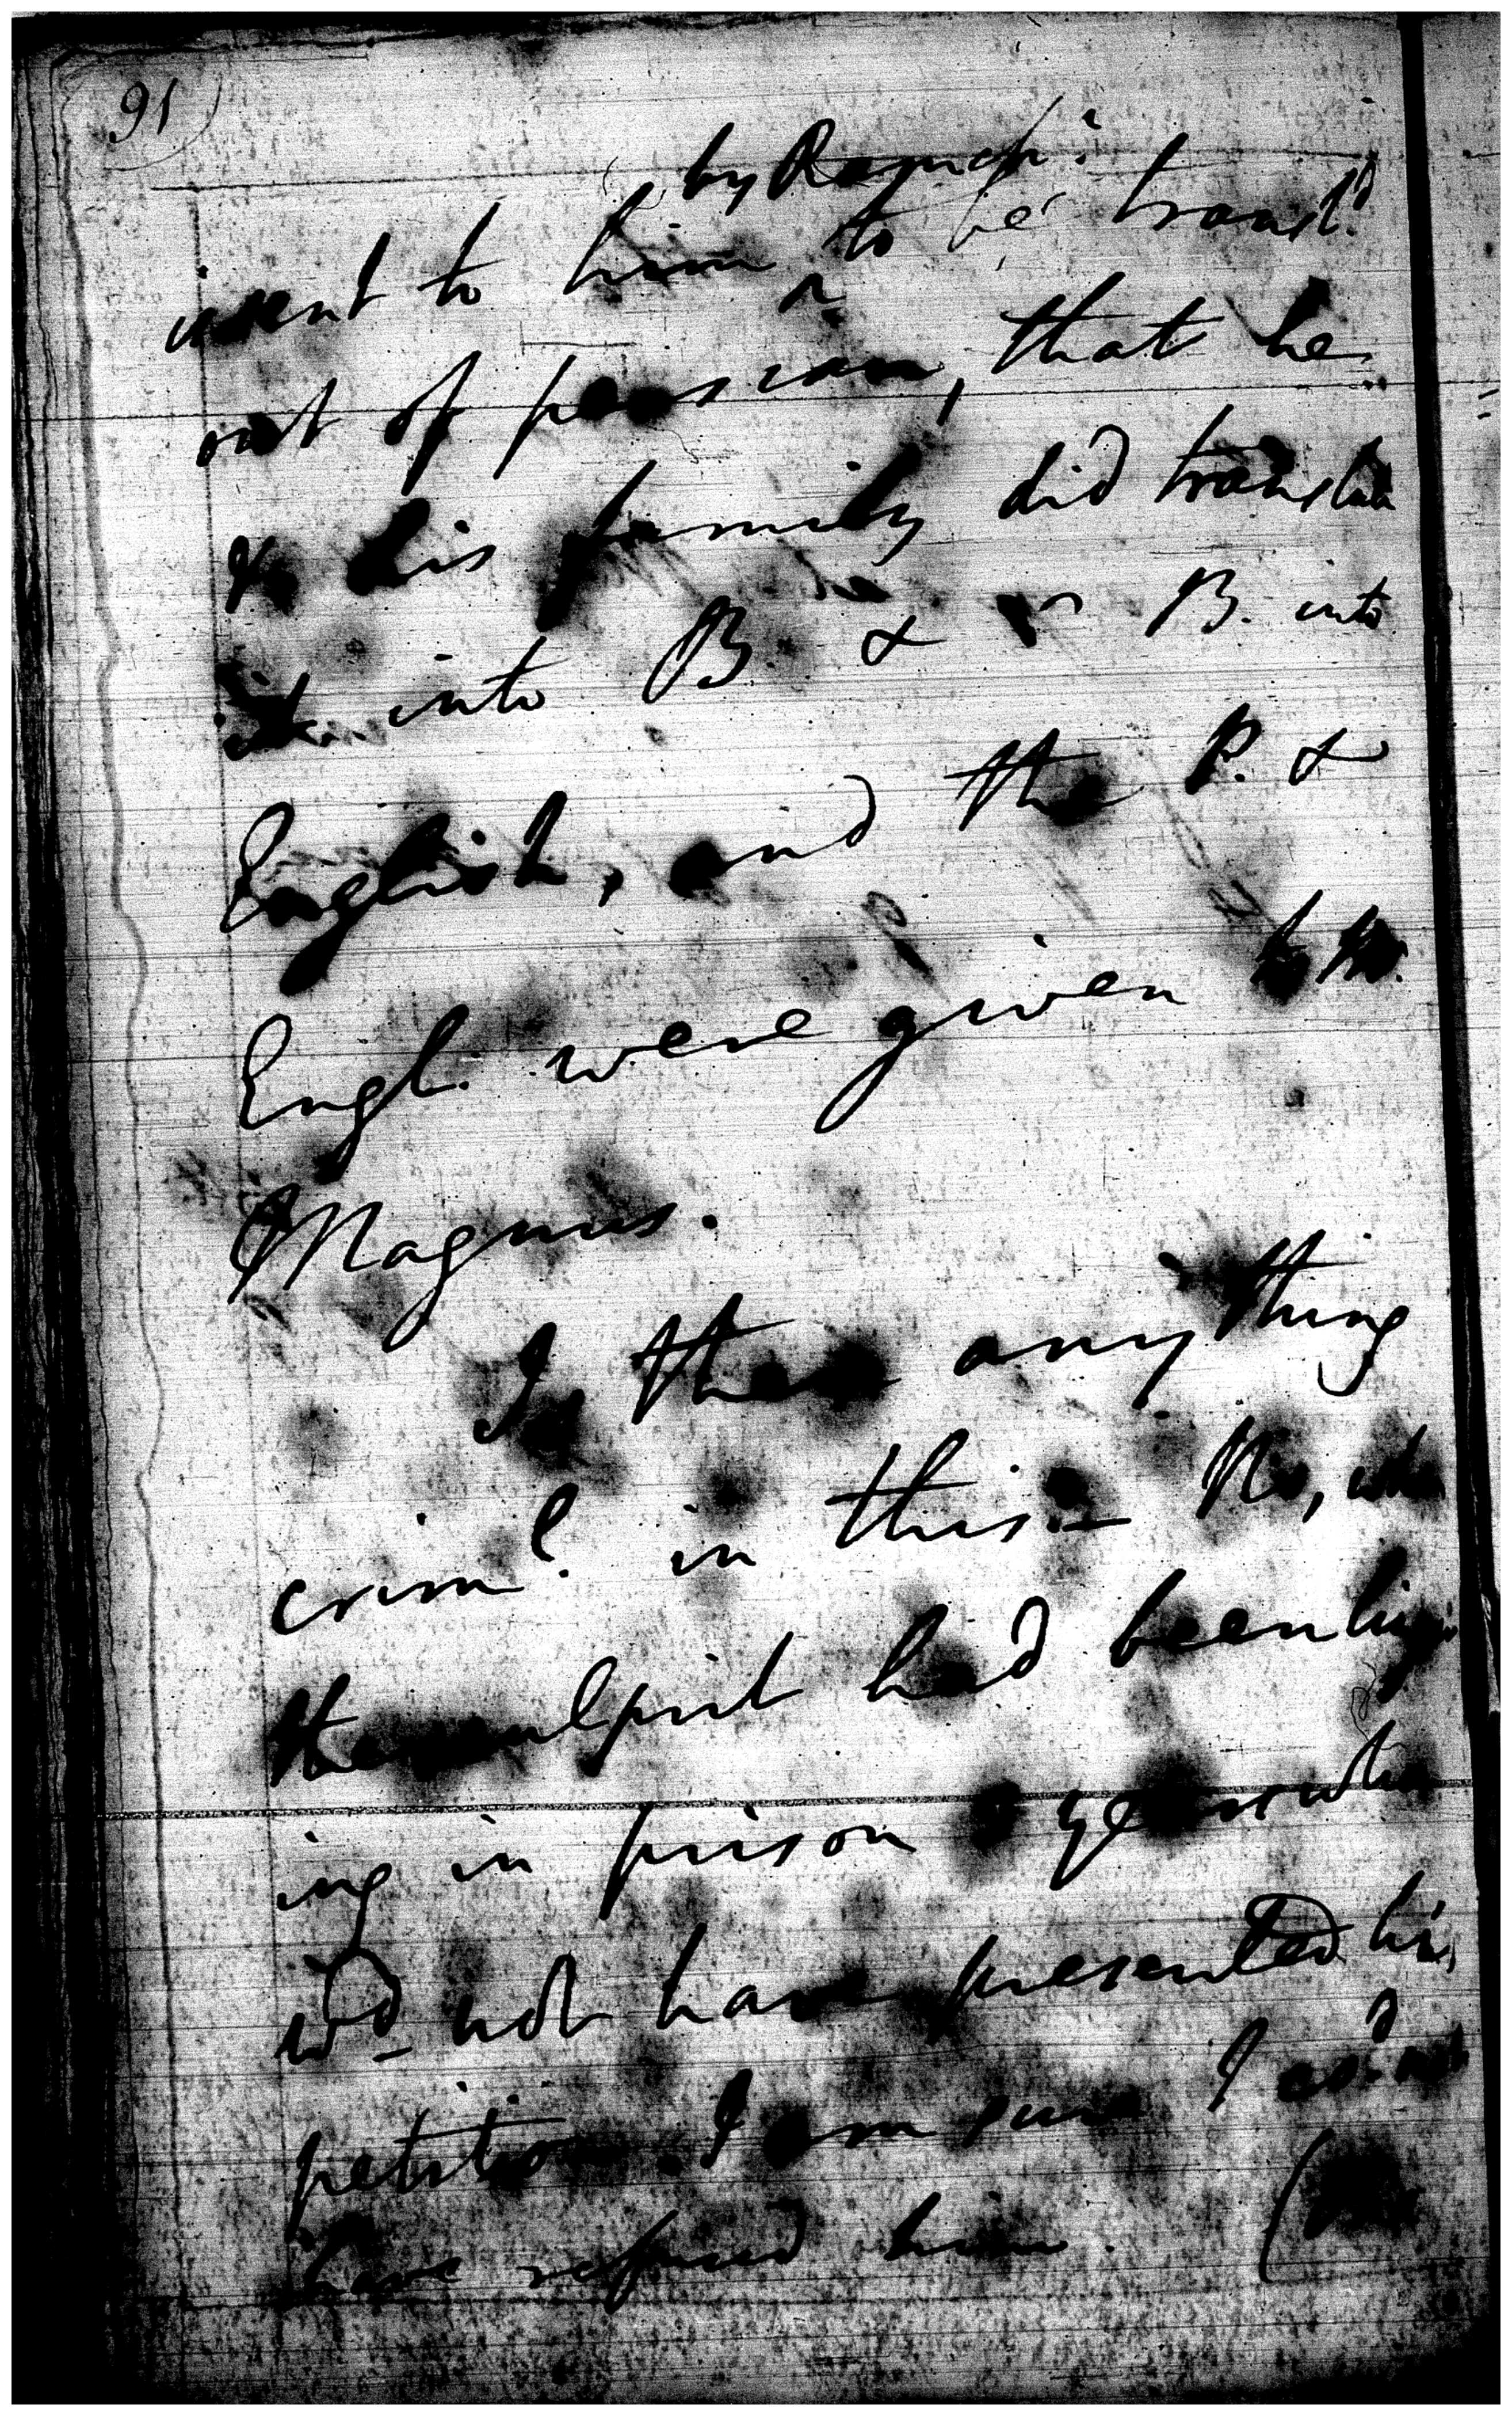 91
by Ramch.
went to him ^ to be transl.d
out of persian, that he
& his family did translate
it into B. & B. into
English, and the P. &
Engl. were given to Mr.
Magnus.
Is there anything
crim.l in this – No, when
the culprit had been
ing in prison years when
wd not have presented his
petition. I am sure I cd. not
have refused him. (